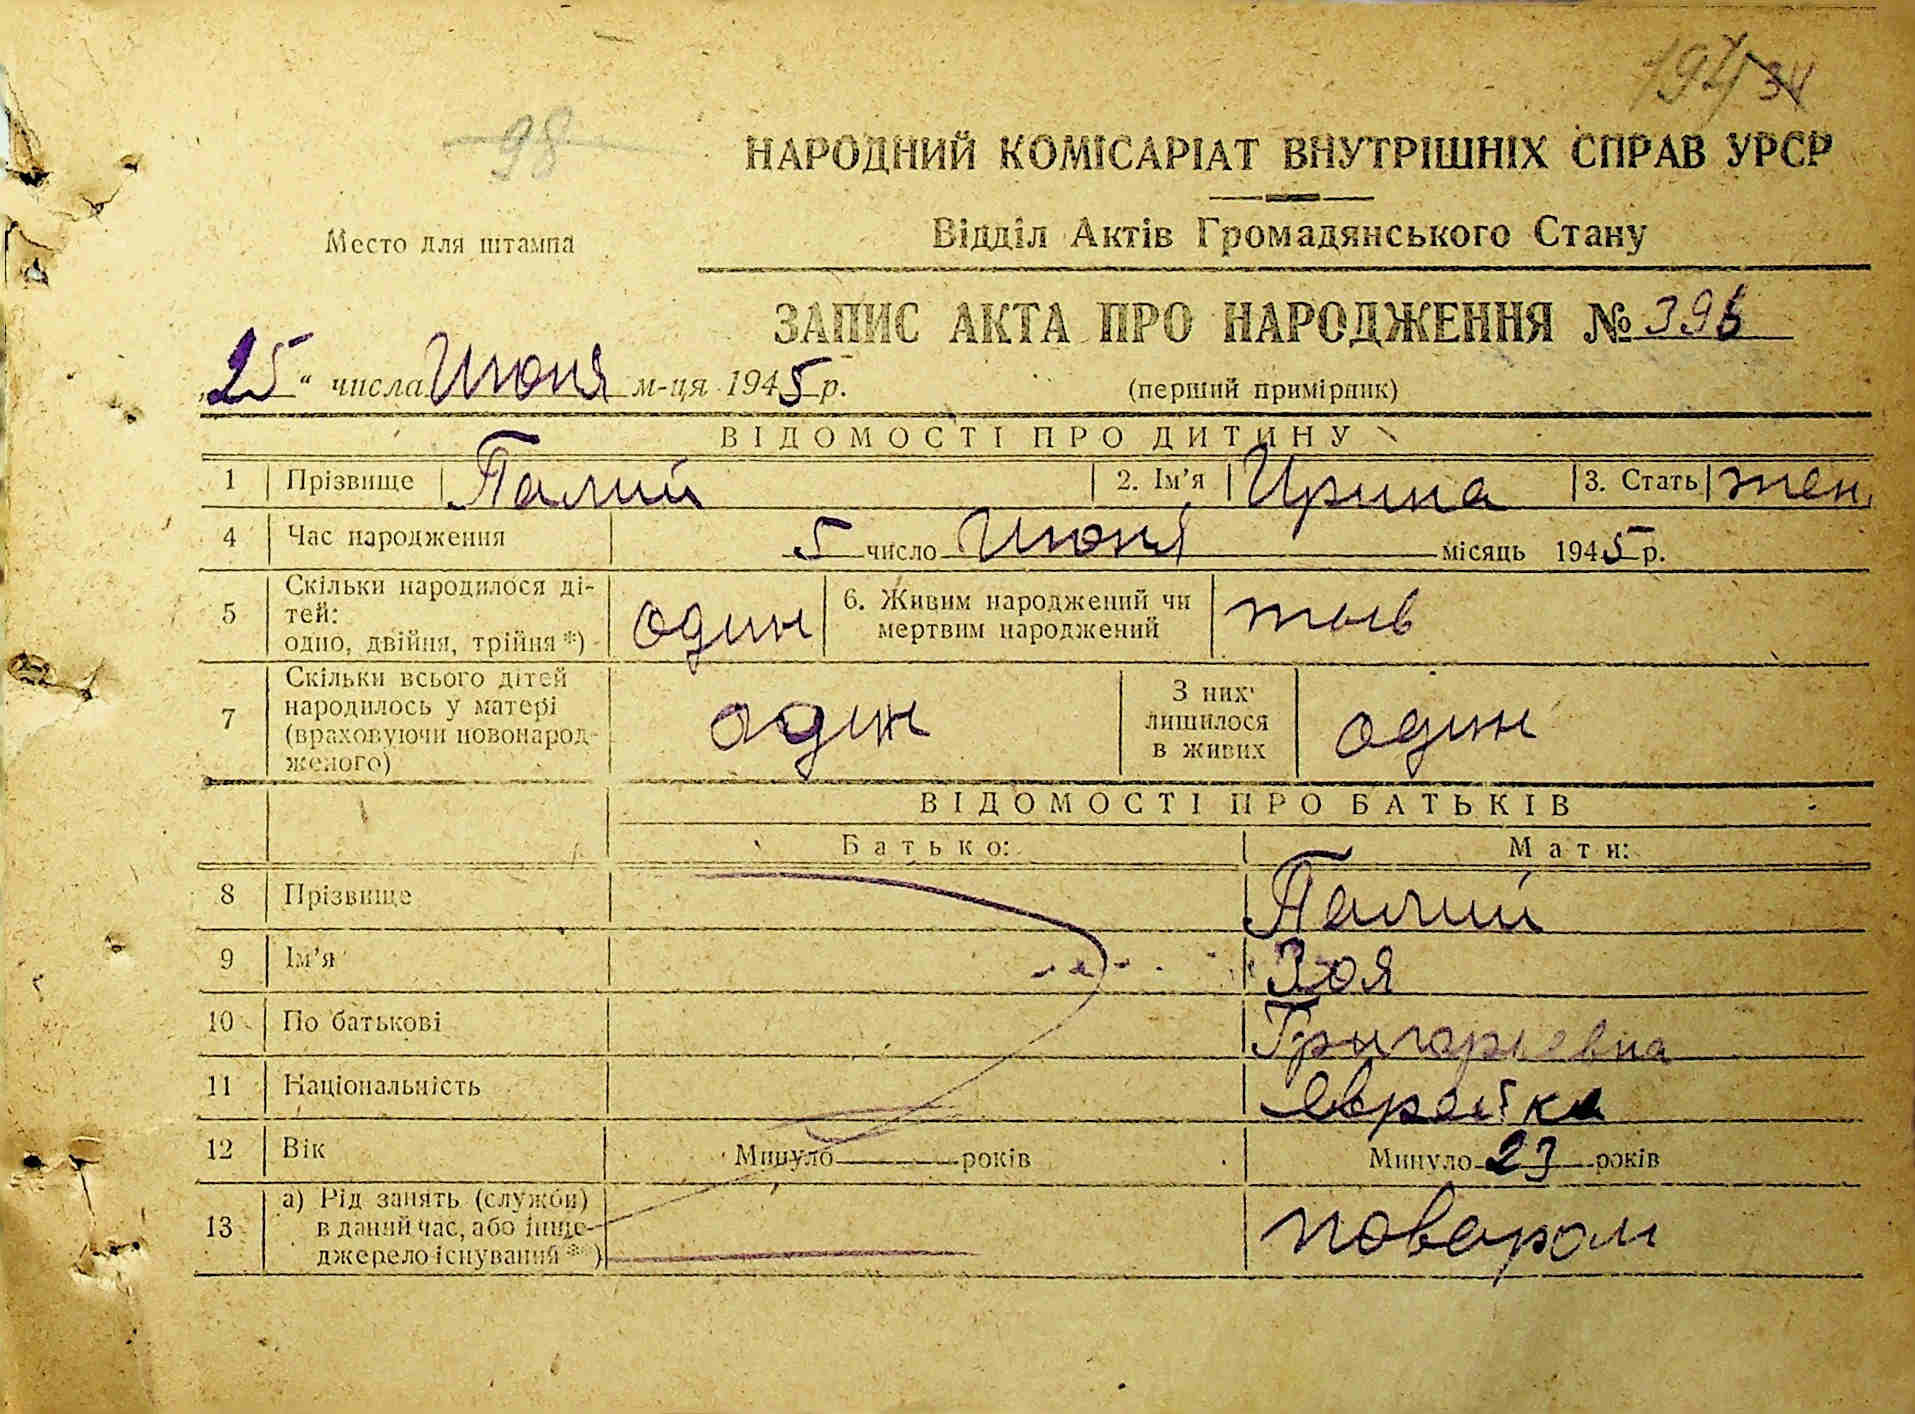 98
194 34
НАРОДНИЙ КОМІСАРІАТ ВНУТРІШНІХ СПРАВ УРСР
Место для штампа
Відділ Актів Громадянського Стану
ЗАПИС АКТА ПРО НАРОДЖЕННЯ № 396
„25“ числа Июня м-ця 1945 р.
(перший примірник)
ВІДОМОСТІ ПРО ДИТИНУ
1 Прізвище Палий 2. Ім’я Ирина 3. Стать жен.
4 Час народження 5 число Июня місяць 1945 р.
5 Скільки народилося ді-
тей:
одно, двійня, трійня *) один
6. Живим народжений чи
мертвим народжений жив
7 Скільки всього дітей
народилось у матері
(враховуючи новонарод-
женого) один
З них
лишилося
в живих один
ВІДОМОСТІ ПРО БАТЬКІВ
Батько: Мати:
8 Прізвище Палий
9 Ім’я Зоя
10 По батькові Григорьевна
11 Національність еврейка
12 Вік Минуло років Минуло 23 років
13 а) Рід занять (служби)
в даний час, або інше
джерело існування **) поваром